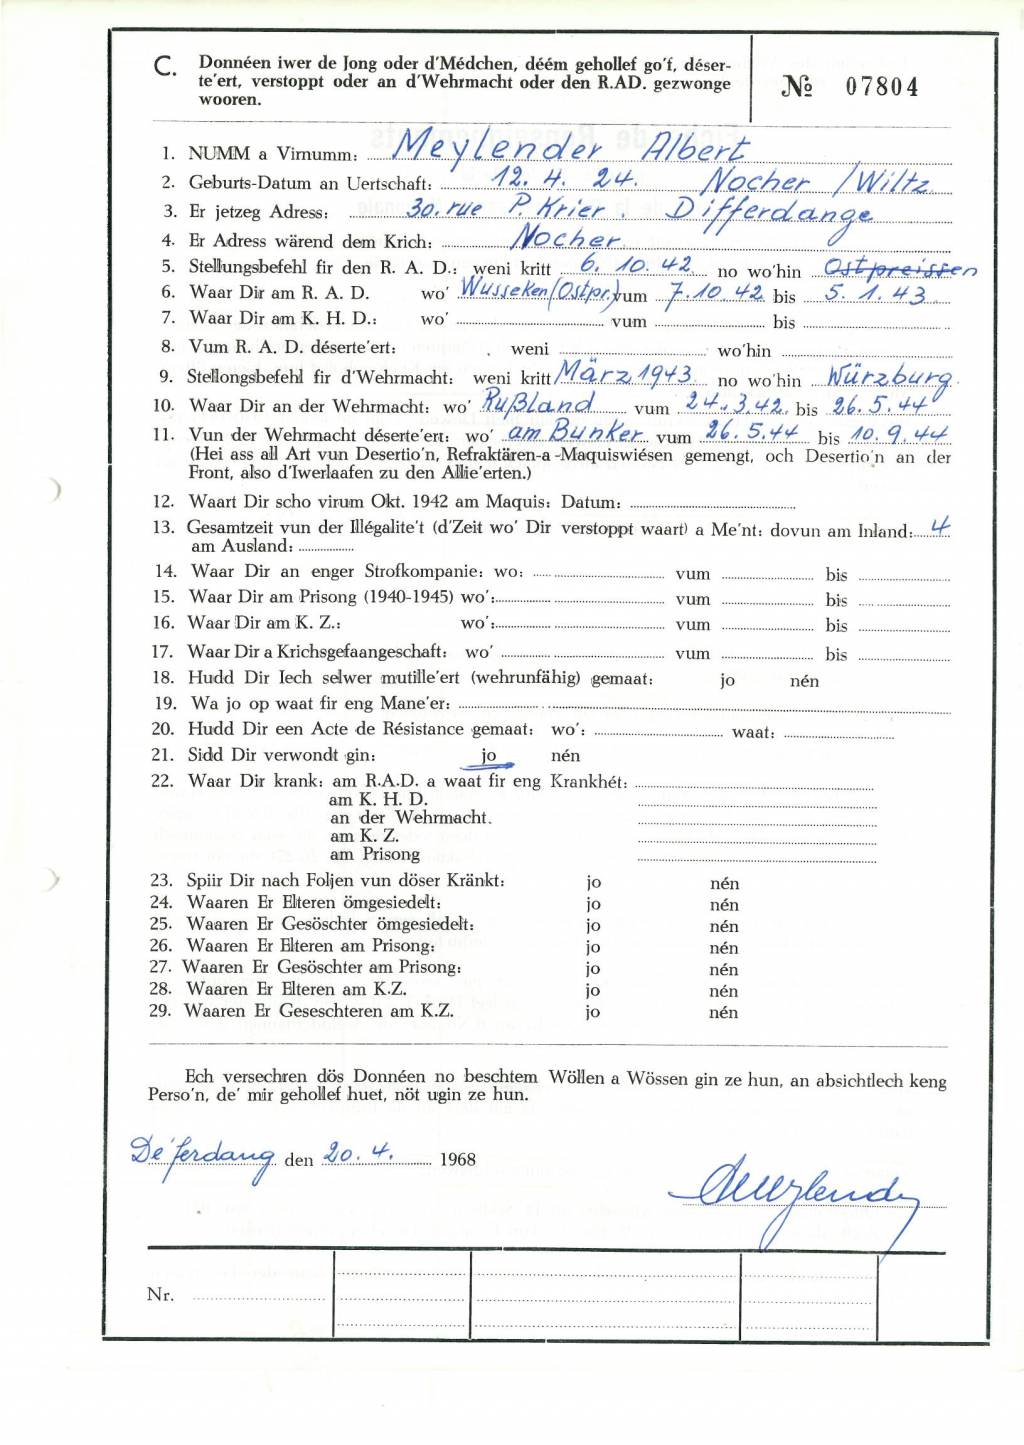 C. Donnéen iwer de Jong oder d'Médchen, déém gehollef go'f, déser-
te'ert, verstoppt oder an d'Wehrmacht oder den R.AD. gezwonge
wooren.
№ 07804
1. NUMM a Virnumm: Meylender Albert
2. Geburts-Datum an Uertschaft: 12. 4. 24. Nocher / Wiltz
3. Er jetzeg Adress: 30. rue P. Krier. Differdange
4. Er Adress wärend dem Krich: Nocher
5. Stellungsbefehl fir den R. A. D.: weni kritt 6. 10. 42 no wo'hin Ostpreissen
6. Waar Dir am R. A. D. wo' Wusseken (Ostpr.) vum 7. 10. 42 bis 5. 1. 43
7. Waar Dir am K. H. D.: wo' vum bis
8. Vum R. A. D. déserte'ert: weni wo'hin
9. Stellongsbefehl fir d'Wehrmacht: weni kritt März 1943 no wo'hin Würzburg
10. Waar Dir an der Wehrmacht: wo' Rußland vum 24. 3. 42. bis 26. 5. 44
11. Vun der Wehrmacht déserte'ert: wo' am Bunker vum 26. 5. 44 bis 10. 9. 44
(Hei ass all Art vun Desertio'n, Refraktären-a -Maquiswiésen gemengt, och Desertio'n an der
Front, also d'Iwerlaafen zu den Allie'erten.)
12. Waart Dir scho virum Okt. 1942 am Maquis: Datum:
13. Gesamtzeit vun der Illégalite't (d'Zeit wo' Dir verstoppt waart) a Me'nt: dovun am Inland: 4
am Ausland:
14. Waar Dir an enger Strofkompanie: wo: vum bis
15. Waar Dir am Prisong (1940-1945) wo': vum bis
16. Waar Dir am K. Z.: wo': vum bis
17. Waar Dir a Krichsgefaangeschaft: wo' vum bis
18. Hudd Dir Iech selwer mutille'ert (wehrunfähig) gemaat: jo nén
19. Wa jo op waat fir eng Mane'er:
20. Hudd Dir een Acte de Résistance gemaat: wo': waat:
21. Sidd Dir verwondt gin: jo nén
22. Waar Dir krank: am R.A.D. a waat fir eng Krankhét:
am K. H. D.
an der Wehrmacht.
am K. Z.
am Prisong
23. Spiir Dir nach Foljen vun döser Kränkt: jo nén
24. Waaren Er Elteren ömgesiedelt: jo nén
25. Waaren Er Gesöschter ömgesiedelt: jo nén
26. Waaren Er Elteren am Prisong: jo nén
27. Waaren Er Gesöschter am Prisong: jo nén
28. Waaren Er Elteren am K.Z. jo nén
29. Waaren Er Geseschteren am K.Z. jo nén
Ech versechren dös Donnéen no beschtem Wöllen a Wössen gin ze hun, an absichtlech keng
Perso'n, de' mir gehollef huet, nöt ugin ze hun.
De'ferdang den 20. 4. 1968
AMeylender
Nr.